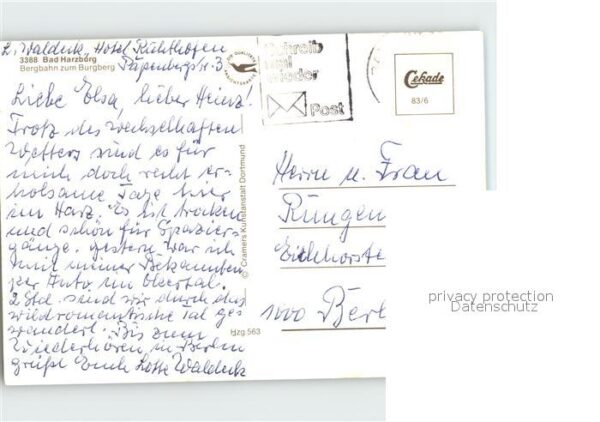 L. Waldeck, Hotel
3388 Bad Harzburg
Bergbahn zum Burgberg
Papenbergstr. 3
Liebe Elsa, lieber Heinz!
Trotz des wechselhaften
Wetters sind es für
mich doch recht er-
holsame Tage hier
im Harz. Es ist trocken
und schön für Spazier-
gänge. gestern war ich
mit meiner Bekannten
per Auto im Okertal.
2 Std. sind wir durch das
wildromantische Tal ge-
wandert. Bis zum
Wiederhören in Berlin
grüßt Euch Lotte Waldeck
© Cramers Kunstanstalt Dortmund
Hzg 563
Schreib
mal
wieder
Post
Cekade
83/6
Herrn u. Frau
Rüngen
1000 Berl
privacy protection
Datenschutz